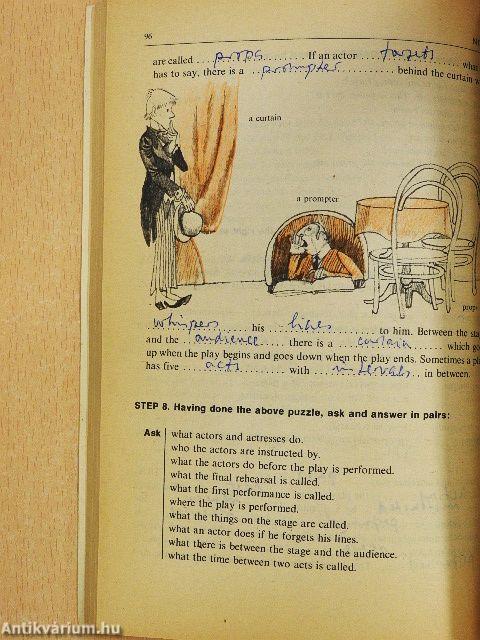 96
are called ... props ......... If an actor .... forgets ..... what
has to say, there is a ... prompter ........... behind the curtain w
a curtain
a prompter
props
whispers ...... his .... lines ....... to him. Between the sta
and the .. audience ..... there is a .... curtain ...... which go
up when the play begins and goes down when the play ends. Sometimes a pl
has five .... acts ...... with ... intervals .. in between.
STEP 8. Having done the above puzzle, ask and answer in pairs:
Ask what actors and actresses do.
who the actors are instructed by.
what the actors do before the play is performed.
what the final rehearsal is called.
what the first performance is called.
where the play is performed.
what the things on the stage are called.
what an actor does if he forgets his lines.
what there is between the stage and the audience.
what the time between two acts is called.
Antikvárium.hu